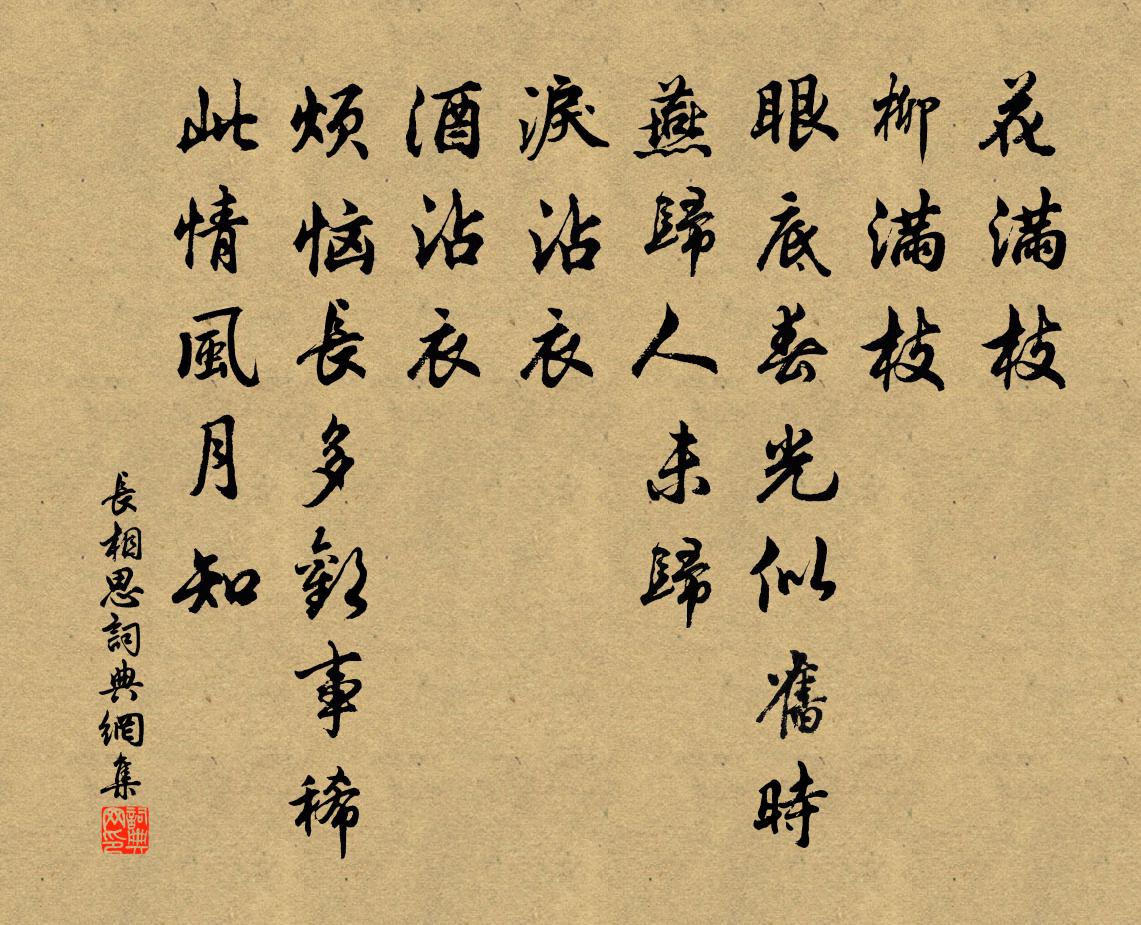 花滿枝
柳滿枝
眼底春光似舊時
燕歸人未歸
淚沾衣
酒沾衣
煩惱長多歡事稀
此情風月知
長相思詞典網集
詞典网印